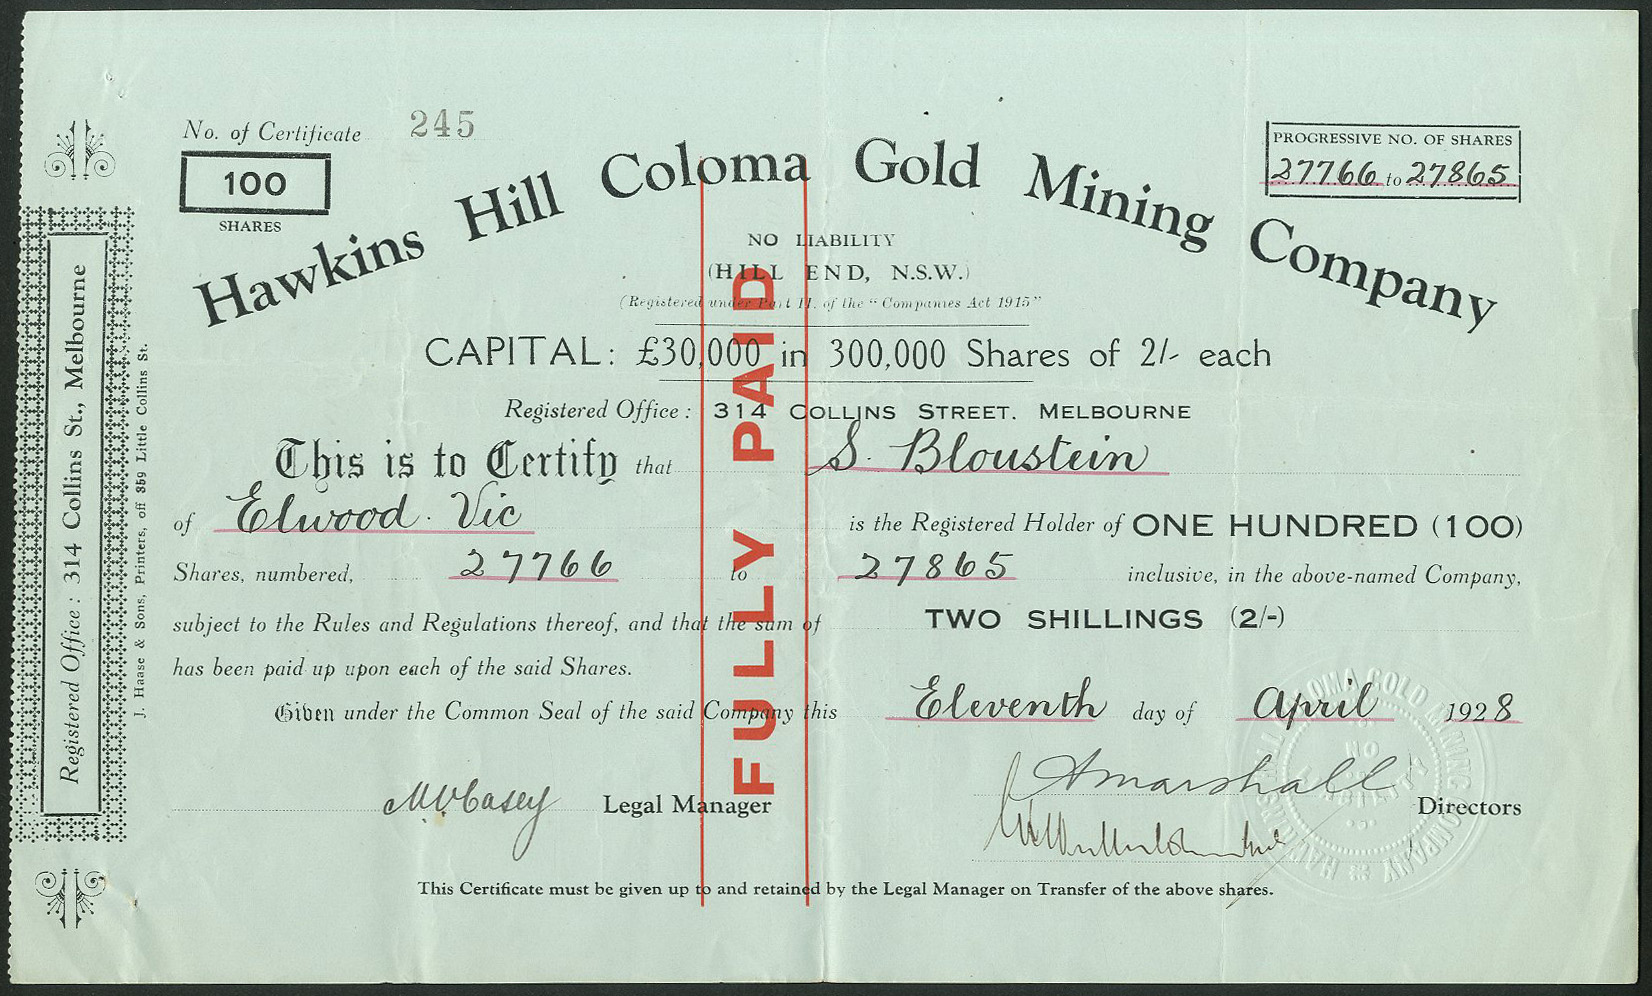 No. of Certificate 245
100
SHARES
PROGRESSIVE NO. OF SHARES
27766 to 27865
Hawkins Hill Coloma Gold Mining Company
NO LIABILITY
(HILL END, N.S.W.)
(Registered under Part II. of the "Companies Act 1915"
CAPITAL: £30,000 in 300,000 Shares of 2/- each
Registered Office: 314 COLLINS STREET. MELBOURNE
This is to Certify that S. Bloustein
of Elwood. Vic is the Registered Holder of ONE HUNDRED (100)
Shares, numbered, 27766 to 27865 inclusive, in the above-named Company,
subject to the Rules and Regulations thereof, and that the sum of TWO SHILLINGS (2/-)
has been paid up upon each of the said Shares.
Given under the Common Seal of the said Company this Eleventh day of April 1928
Casey Legal Manager
A Marshall Directors
This Certificate must be given up to and retained by the Legal Manager on Transfer of the above shares.
FULLY PAID
Registered Office: 314 Collins St., Melbourne
J. Haase & Sons, Printers, off 359 Little Collins St.
HAWKINS HILL COLOMA GOLD MINING COMPANY
NO
LIABILITY